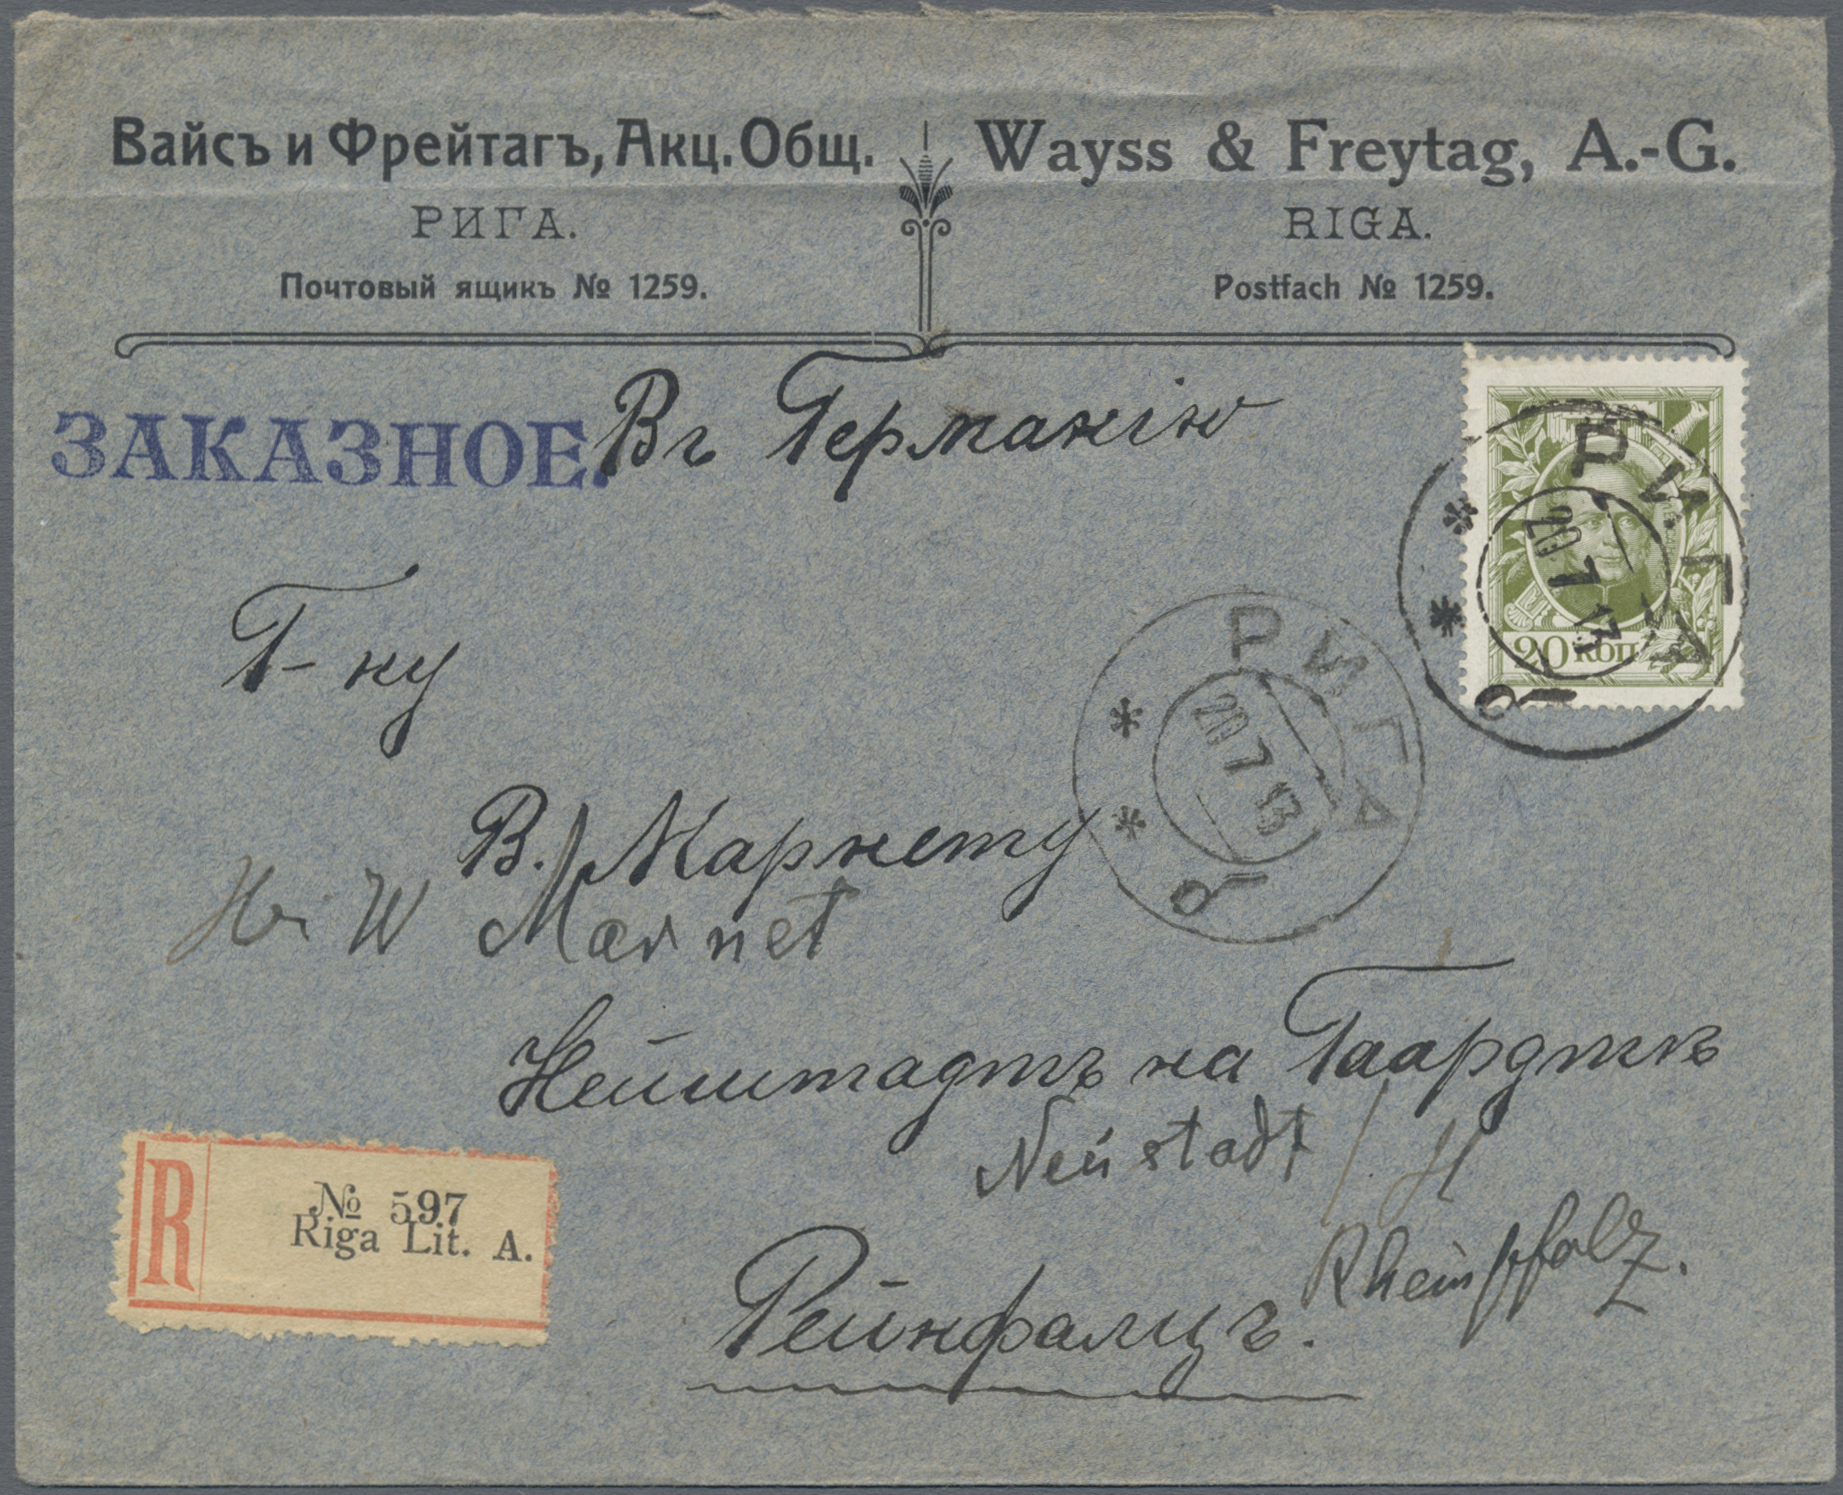 Вайсъ и Фрейтагъ, Акц. Общ.
РИГА.
Почтовый ящикъ № 1259.
Wayss & Freytag, A.-G.
RIGA.
Postfach № 1259.
ЗАКАЗНОЕ.
Въ Германію
20 КОП
РИГА
20 7 13
Г-ну
РИГА
20 7 13
В. Марнету
W Marnet
Нейштадтъ на Гаардтѣ
Neustadt / H
R
№ 597
Riga Lit. A.
Рейнфалцъ.
Rheinpfalz.